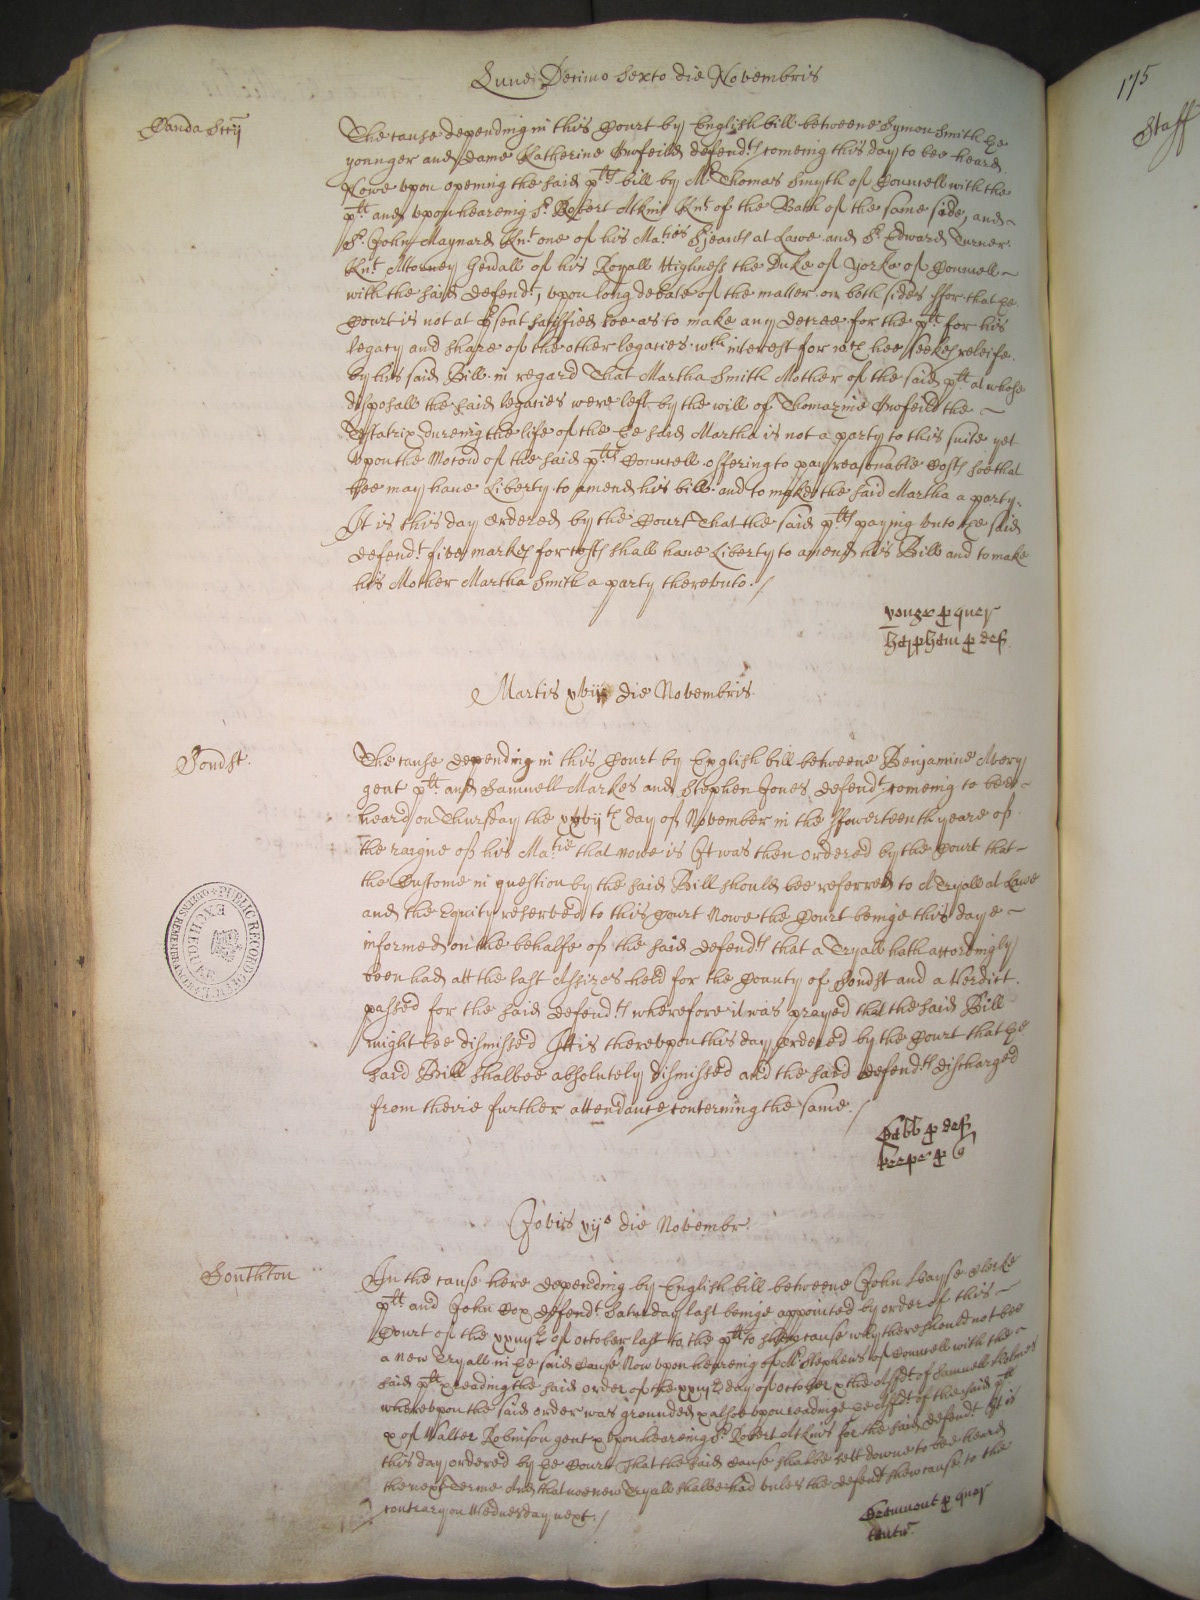 Lune Decimo Sexto die Novembris
175
Staff
The cause depending in this Court by English bill betweene Symon Smith ye
younger and Dame Katherine defendts comeing this day to bee heard
Nowe upon opening the said plts bill by Mr Thomas Smyth of Councell with the
plt and upon heareing Sr Robert Atkins Knt of the Bath of the same side, and
Sr John Maynard Knt one of his Maties Sjeants at Lawe and Sr Edward Turner
Knt Attorney Genall of his Royall Highness the Duke of Yorke of Councell
with the said defendt, upon long debate of the matter on both sides ffor that ye
Court is not at psent satisfied soe as to make any decree for the plt for his
legacy and share of the other legacies wth interest for wch hee seekes releife
by his said Bill in regard That Martha Smith Mother of the said plt at whose
disposall the said legacies were left by the will of Thomazine the
Testatrix dureing the life of the ye said Martha is not a party to this suite yet
upon the Motion of the said plts Councell offering to pay reasonable Costs soe that
hee may have Liberty to amend his bill and to make the said Martha a party
It is this day Ordered by the Court That the said plts paying unto ye said
defendt five markes for costs shall have Liberty to amend his Bill and to make
his Mother Martha Smith a party thereunto
p quer
p def
Martis xvii die Novembris
Somst.
The cause depending in this Court by English bill betweene Benjamine Avery
gent plt and Samuell Markes and Stephen Jones defendts comeing to bee
heard on Thursday the xxvijth day of November in the ffowerteenth yeare of
the raigne of his Matie that nowe is It was then ordered by the Court that
the Custome in question by the said Bill should bee referred to A Tryall at Lawe
and the Equity reserved to this Court Nowe the Court beinge this daye
informed on the behalfe of the said defendts that a Tryall hath accordingly
been had att the last Assizes held for the County of Somst and a Verdict
passed for the said defendts wherefore it was prayed that the said Bill
might bee dismissed Itt is thereupon this day Ordered by the Court that ye
said Bill shalbee absolutely dismissed and the said defendts discharged
from theire further attendance concerning the same
p def
p q
Jovis die Novembr.
Southton
In the cause here depending by English bill betweene John Clerke
plt and John Cox defendt Saturday last beinge appointed by order of this
Court of the of October last to the plt to shew cause why there should not bee
a new Tryall in ye said Cause Now upon heareing of Mr Stephens of Councell with the
said plt x reading the said order of the day of October x the Affdt of Samuell Holmes
whereupon the said order was grounded x alsoe upon readinge ye Affdt of the said plt
x of Walter Robinson gent x upon heareing Sr Robert Atkins for the said defendt It is
this day ordered by ye Court That the said Cause shalbe sett downe to bee heard
the next Terme And that noe new Tryall shalbe had unles the defendt shew cause to the
contrary on Wednesday next
p quer